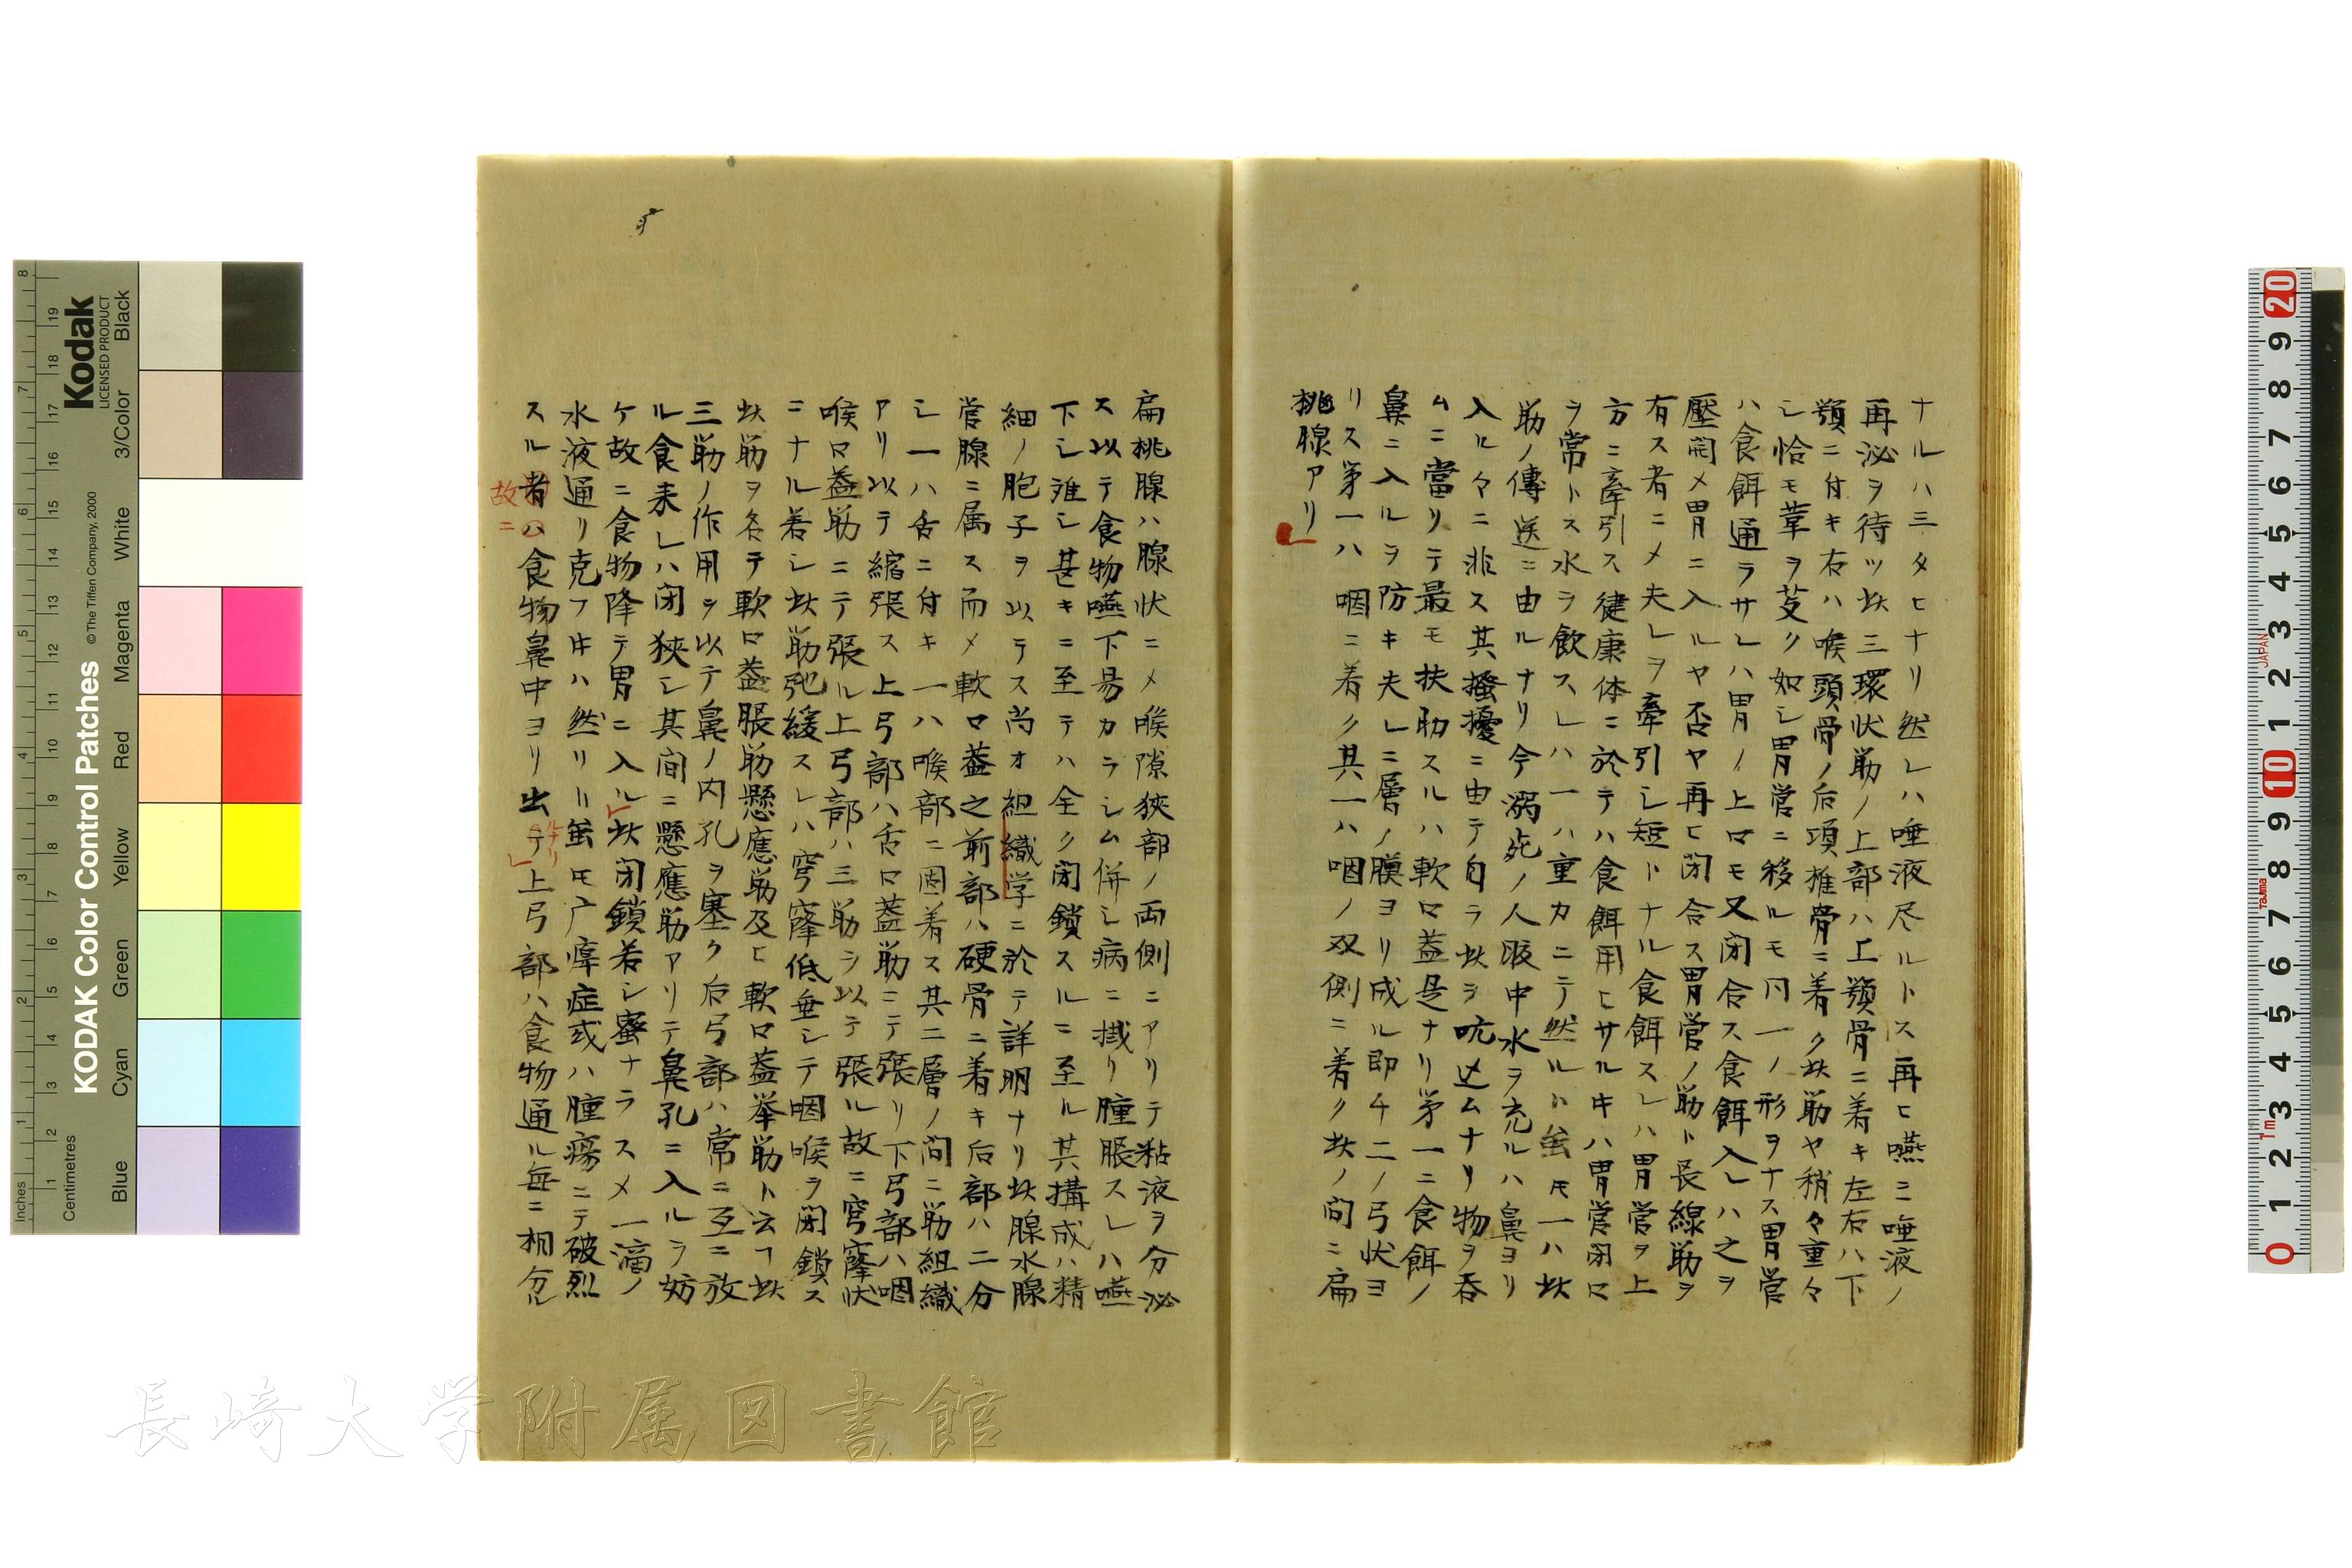 ナルハ三タヒナリ然レハ唾液尽ルトス再ヒ嚥ニ唾液ノ
再泌ヲ待ツ此三環状筋ノ上部ハ上顎骨ニ着キ左右ハ下
顎ニ付キ右ハ喉頭骨ノ后項椎骨ニ着ク此筋ヤ稍々重々
シ恰モ葦ヲ芟ク如シ胃管ニ移ルモ同一ノ形ヲナス胃管
ハ食餌通ラサレハ胃ノ上口モ又閉合ス食餌入レハ之ヲ
壓開メ胃ニ入ルヤ否ヤ再ヒ閉合ス胃管ノ筋ト長線筋ヲ
有ス者ニメ夫レヲ牽引シ短トナル食餌スレハ胃管ヲ上
方ニ牽引ス健康体ニ於テハ食餌用ヒサル𪜈ハ胃管閉口
ヲ常トス水ヲ飲スレハ一ハ重カニテ然ルト虽𪜈一ハ此
筋ノ傳送ニ由ルナリ今溺死ノ人腹中水ヲ充ルハ鼻ヨリ
入ルヿニ非ス其搔擾ニ由テ自ラ此ヲ吭込ムナリ物ヲ呑
ムニ當リテ最モ扶助スルハ軟口蓋是ナリ第一ニ食餌ノ
鼻ニ入ルヲ防キ夫レニ層ノ膜ヨリ成ル即チ二ノ弓状ヨ
リス第一ハ咽ニ着ク其一ハ咽ノ双側ニ着ク此ノ間ニ扁
桃腺アリ
扁桃腺ハ腺状ニメ喉隙狹部ノ両側ニアリテ粘液ヲ分泌
ス以テ食物嚥下易カラシム併シ病ニ撠リ腫脹スレハ嚥
下シ難シ甚キニ至テハ全ク閉鎖スルニ至ル其搆成ハ精
細ノ胞子ヲ以テス尚オ組織学ニ於テ詳明ナリ此腺水腺
管腺ニ属ス而メ軟口蓋之前部ハ硬骨ニ着キ后部ハ二分
シ一ハ舌ニ付キ一ハ喉部ニ固着ス其二層ノ間ニ筋組織
アリ以テ縮張ス上弓部ハ舌口蓋筋ニテ張リ下弓部ハ咽
喉口蓋筋ニテ張ル上弓部ハ三筋ヲ以テ張ル故ニ穹窿状
ニナル若シ此筋弛緩スレハ穹窿低垂シテ咽喉ヲ閉鎖ス
此筋ヲ名テ軟口蓋脹筋懸應筋及ヒ軟口蓋挙筋ト云フ此
三筋ノ作用ヲ以テ鼻ノ内孔ヲ塞ク后弓部ハ常ニ互ニ放
ル食来レハ閉狹シ其间ニ懸應筋アリテ鼻孔ニ入ルヲ妨
ケ故ニ食物降テ胃ニ入ル此閉鎖若シ蜜ナラスメ一滴ノ
水液通リ克フ𪜈ハ然リト虽𪜈广痺症或ハ腫瘍ニテ破烈
スル者ハ食物鼻中ヨリ出テ上弓部ハ食物通ル毎ニ相分ル
故ニ